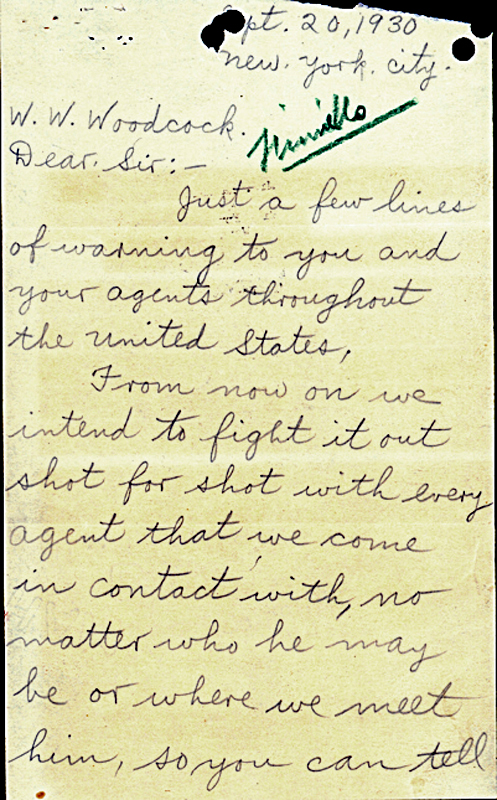 Sept. 20, 1930
New. York. city.
W. W. Woodcock.
Dear. Sir:—
Just a few lines
of warning to you and
your agents throughout
the United States,
From now on we
intend to fight it out
shot for shot with every
agent that we come
in contact with, no
matter who he may
be or where we meet
him, so you can tell